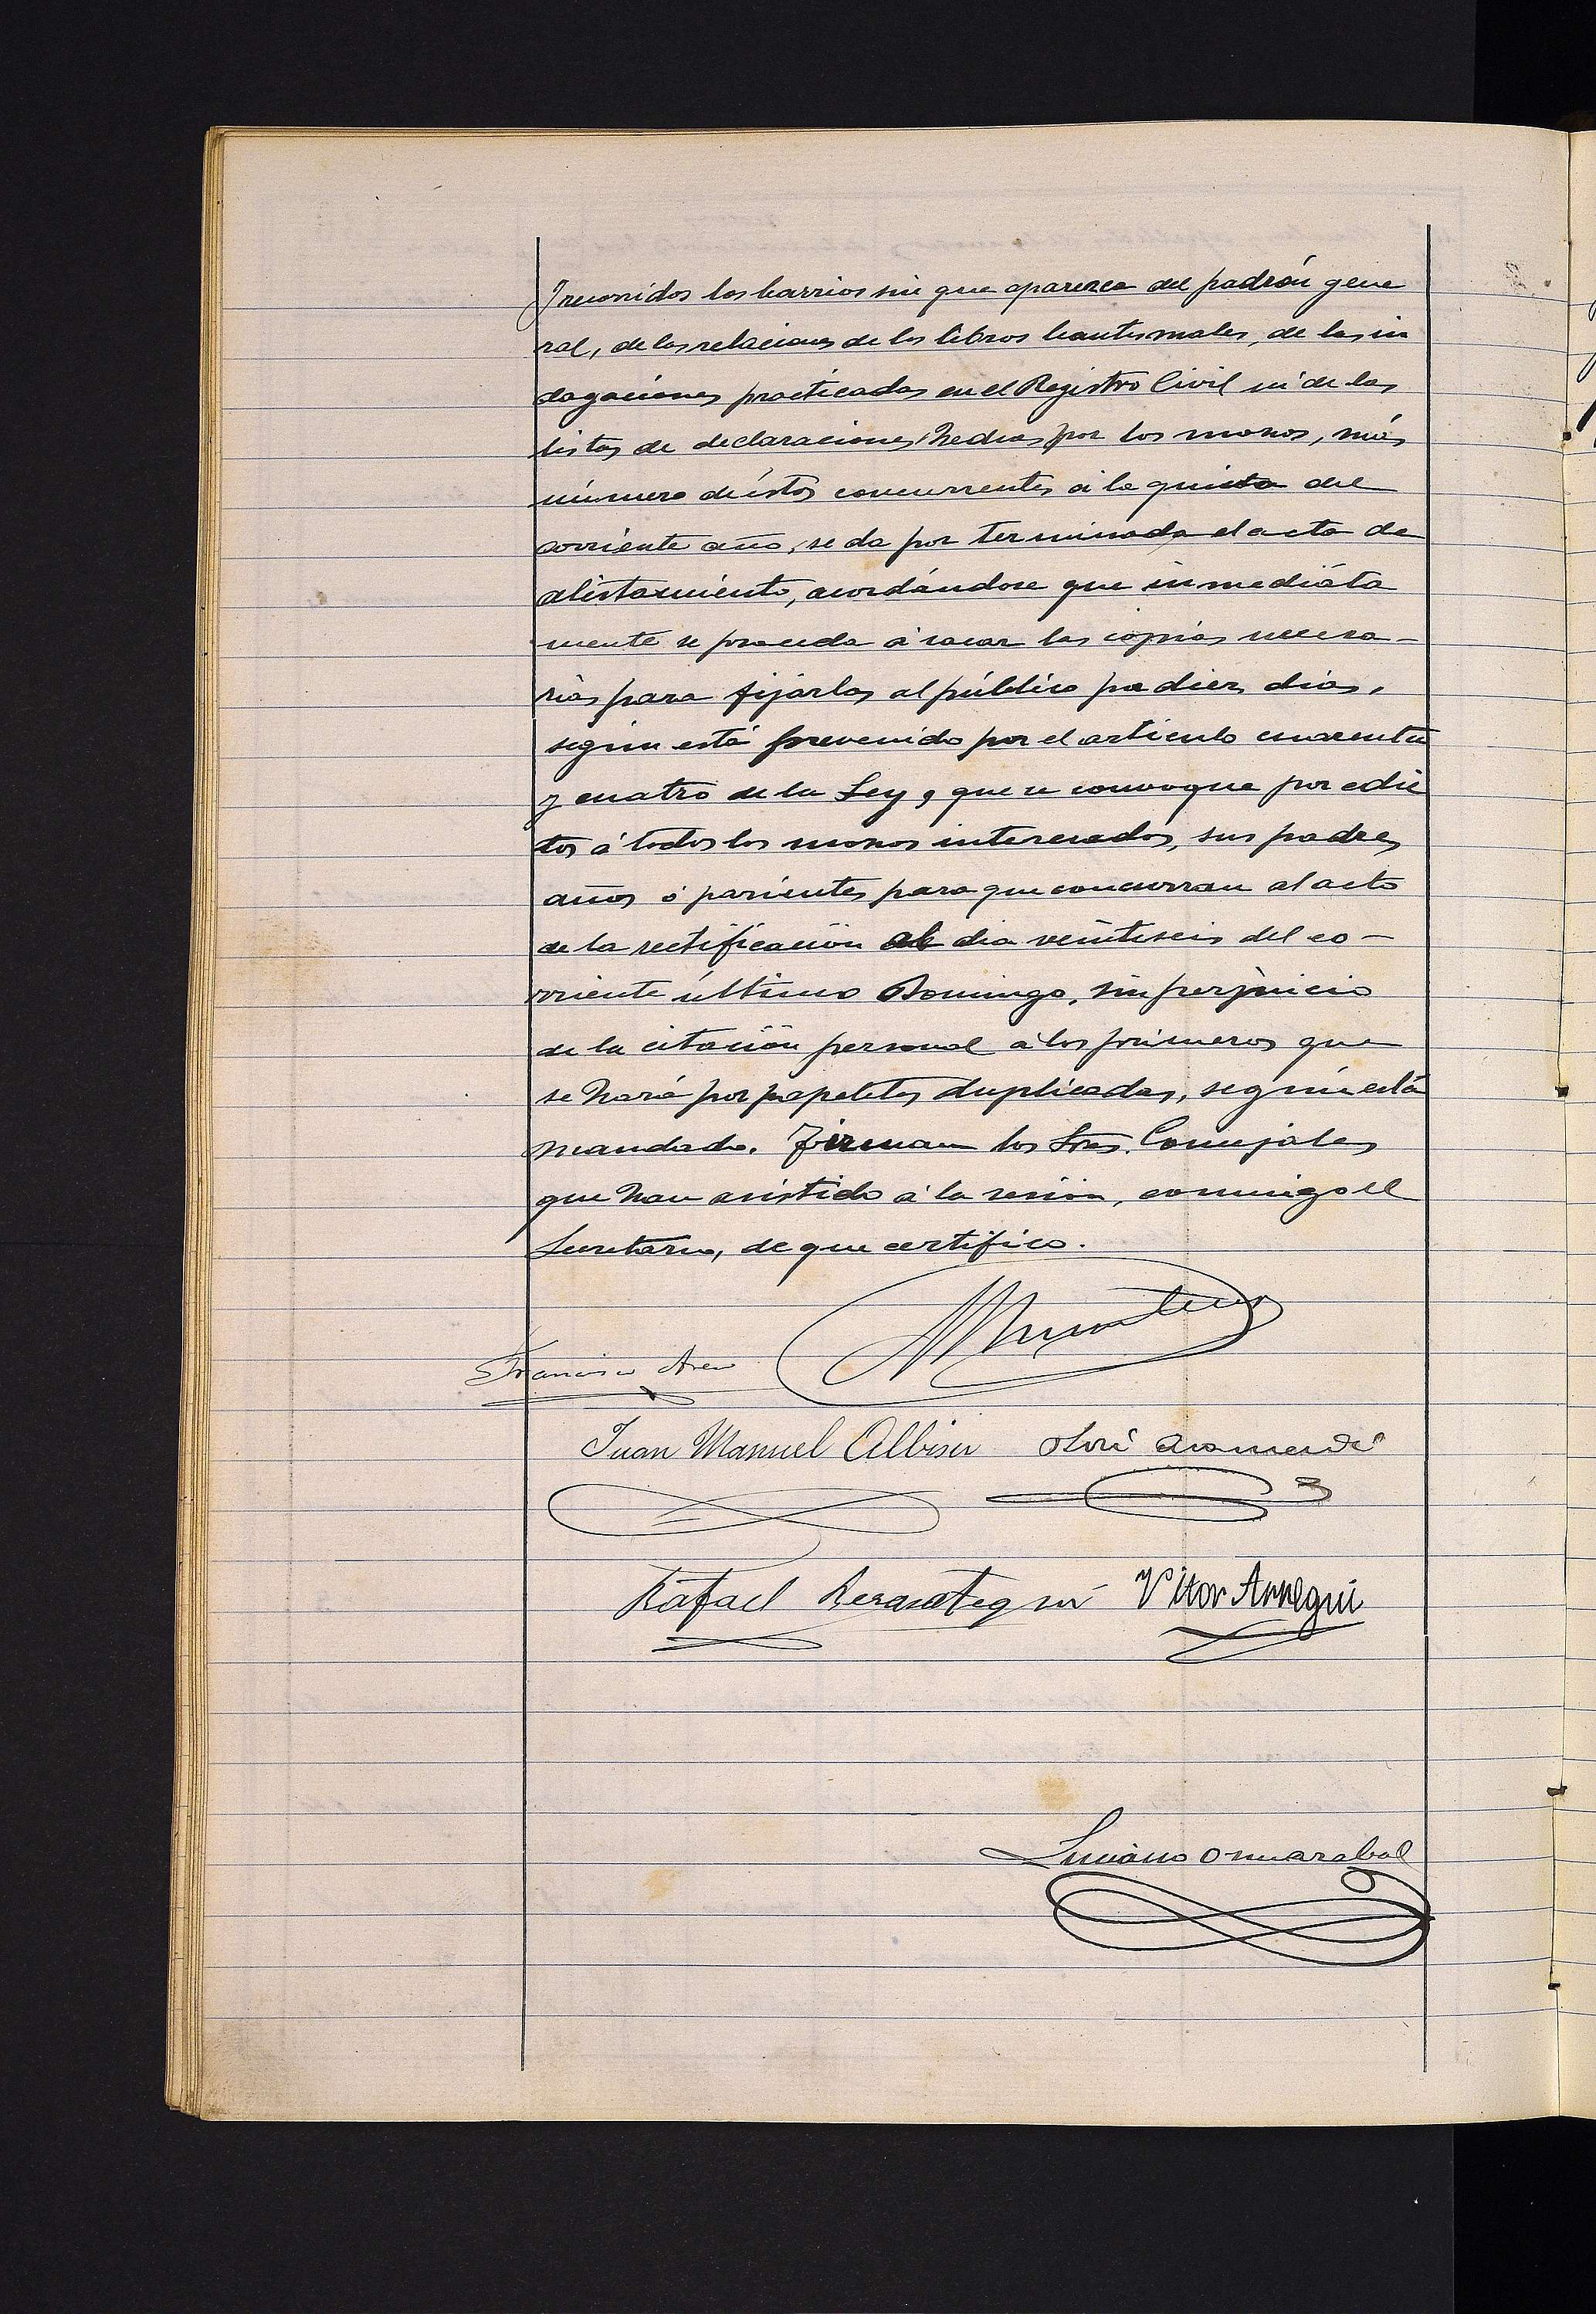 Y recorridos los barrios sin que aparezca del padrón gene
ral, de las relaciones de los libros bautismales, de las in
dagaciones practicadas en el Registro Civil ni de las
listas de declaraciones hechas por los mozos, más
número de éstos concurrentes á la quinta del
corriente año, se da por terminada el acta de
alistamiento, acordándose que inmediáta
mente se proceda á sacar las copias necesa-
rias para fijarlas al público por diez dias,
según está prevenido por el artículo cuarenta
y cuatro de la Ley, que se convoque por edic
tos á todos los mozos interesados, sus padres
amos ó parientes para que concurran al acto
de la rectificación al dia veintiseis del co-
rriente último Domingo, sin perjuicio
de la citación personal á los primeros que
se hará por papeletas duplicadas, según está
mandado. Firman los Sres. Concejales
que han asistido á la sesión, conmigo el
Secretario, de que certifico.
Francisco
Juan Manuel Albisu José Aramendi
Rafael Berasategui Vitor Arregui
Luciano Omarabal